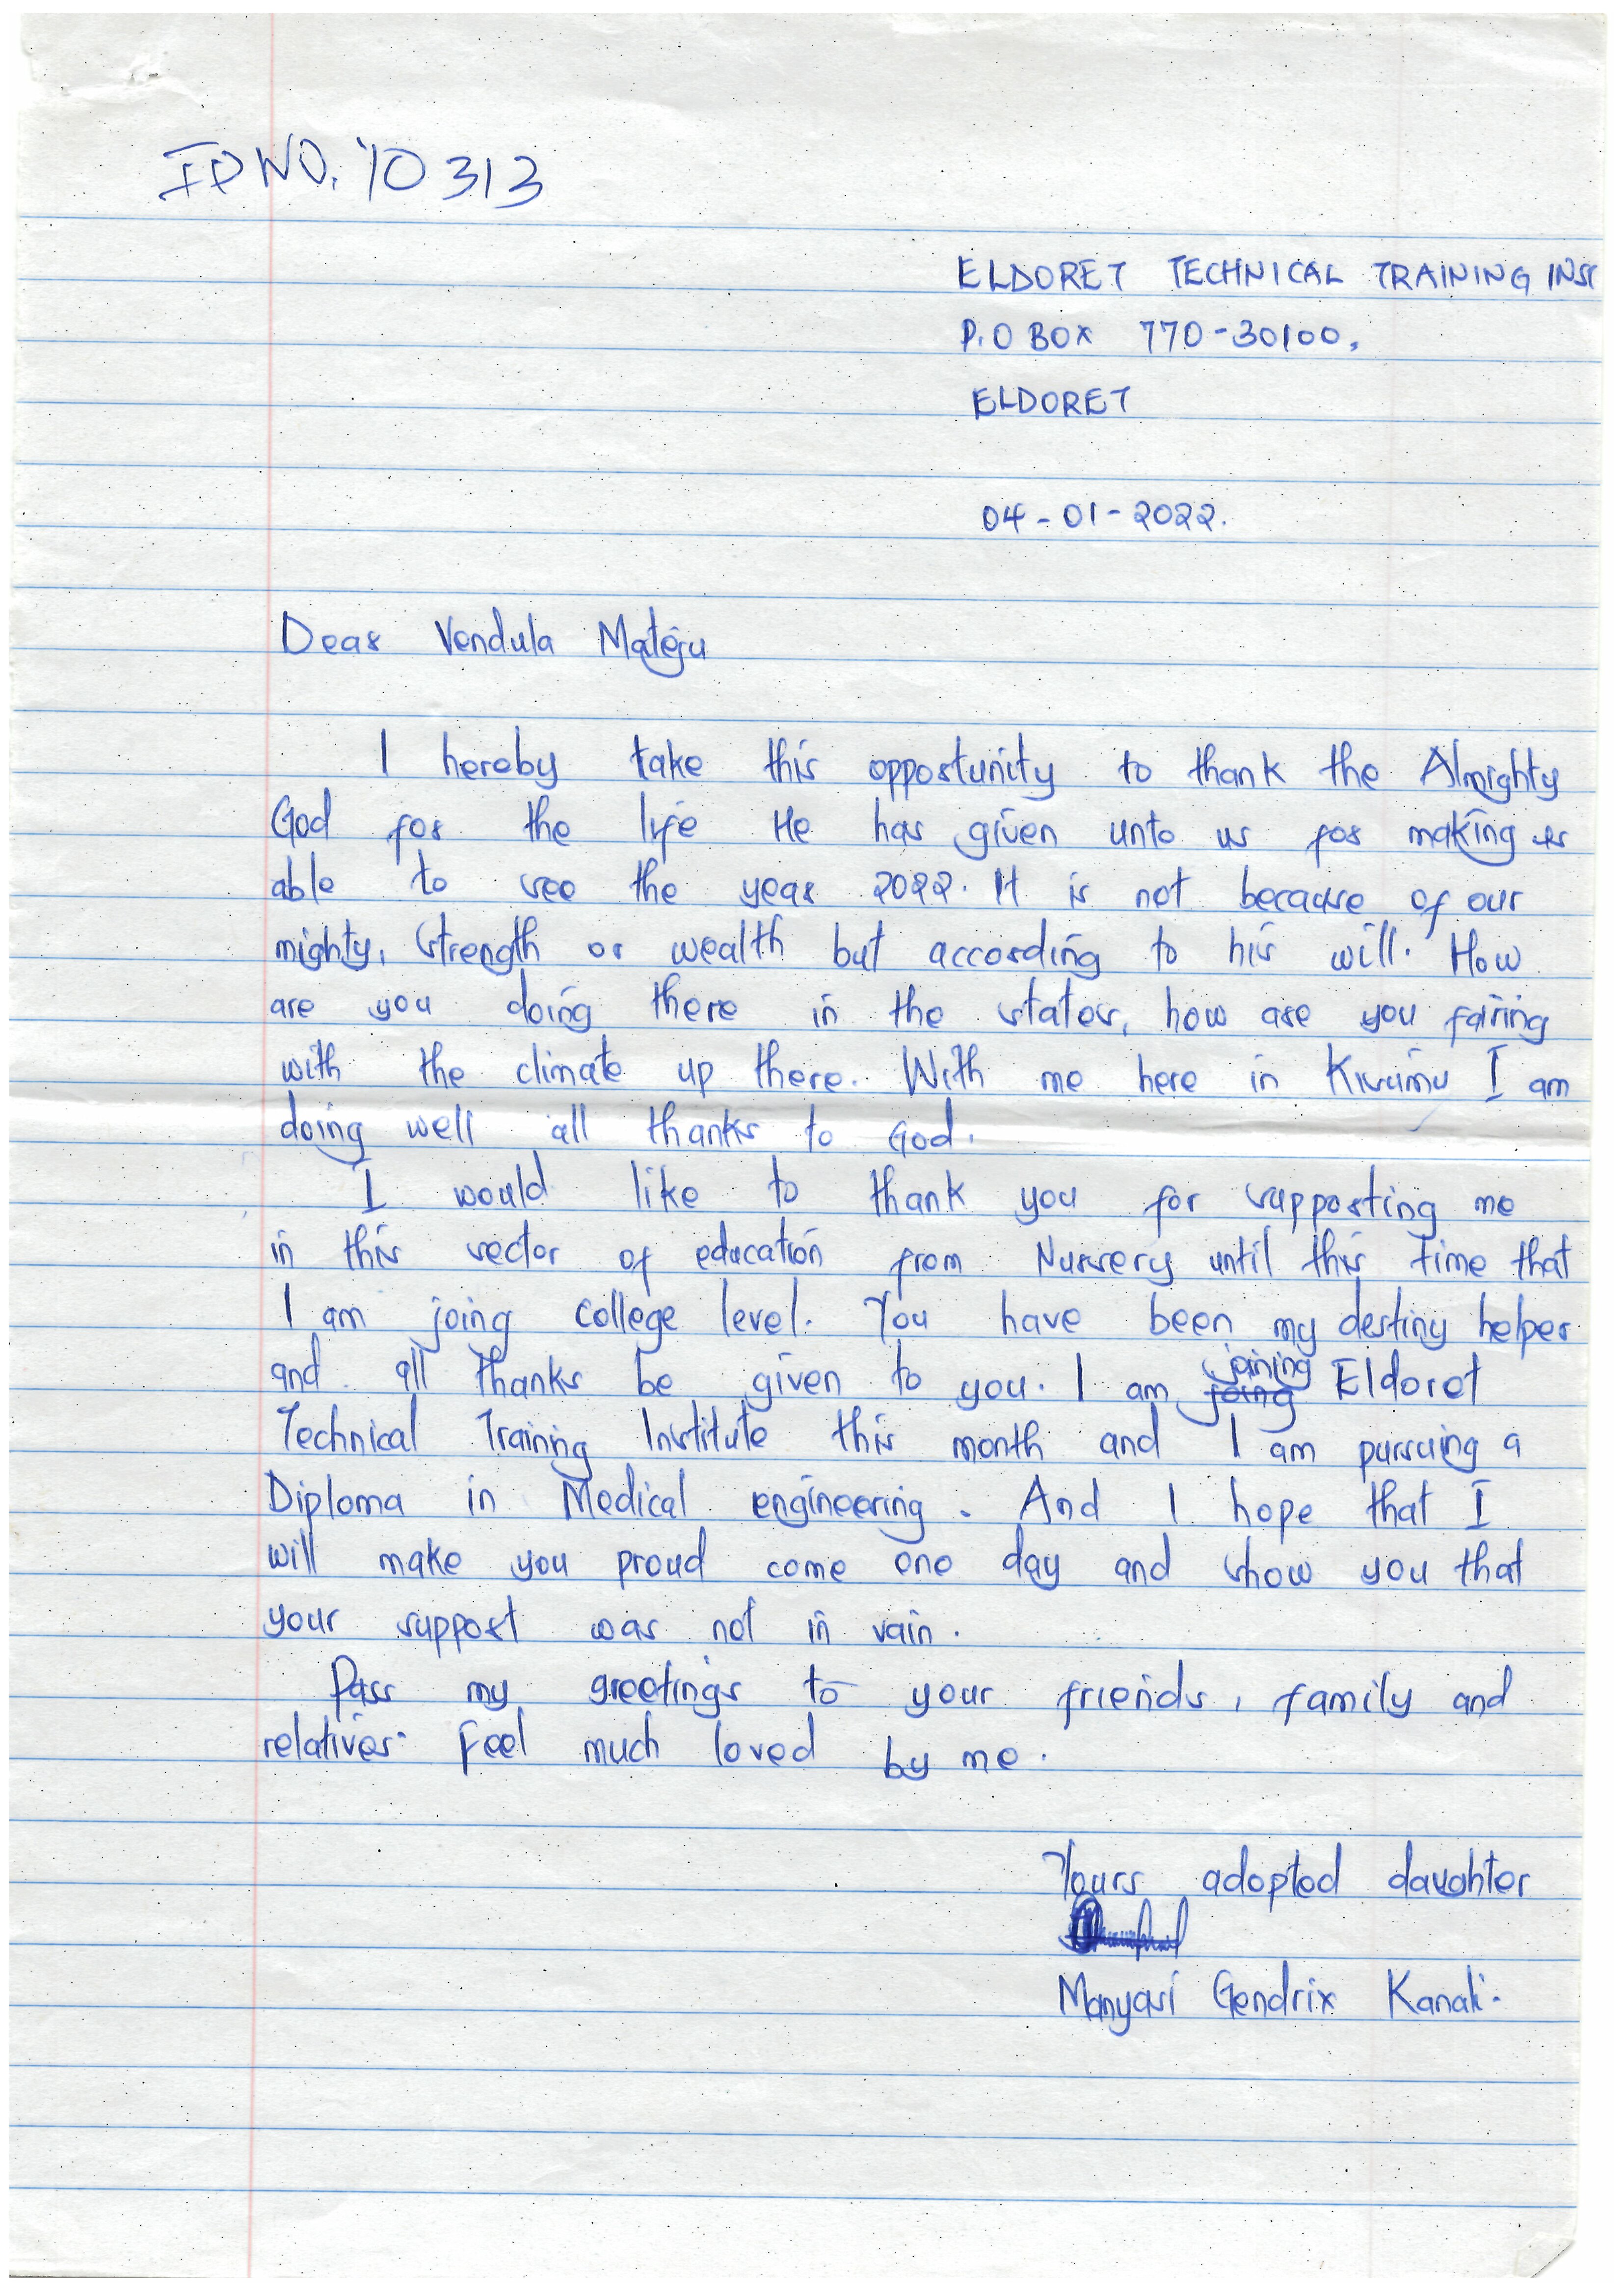 ID NO. 10313
ELDORET TECHNICAL TRAINING INST
P.O BOX 770-30100,
ELDORET
04-01-2022.
Dear Vendula Mateju
I hereby take this opportunity to thank the Almighty
God for the life He has given unto us for making us
able to see the year 2022. It is not because of our
mighty, strength or wealth but according to his will. How
are you doing there in the states, how are you fairing
with the climate up there. With me here in Kisumu I am
doing well all thanks to God.
I would like to thank you for supporting me
in this sector of education from Nursery until this time that
I am joing college level. You have been my destiny helper
and all thanks be given to you. I am joining Eldoret
Technical Training Institute this month and I am pursuing a
Diploma in Medical engineering. And I hope that I
will make you proud come one day and show you that
your support was not in vain.
Pass my greetings to your friends, family and
relatives. Feel much loved by me.
Yours adopted daughter
Manyasi Gendrix Kanali.